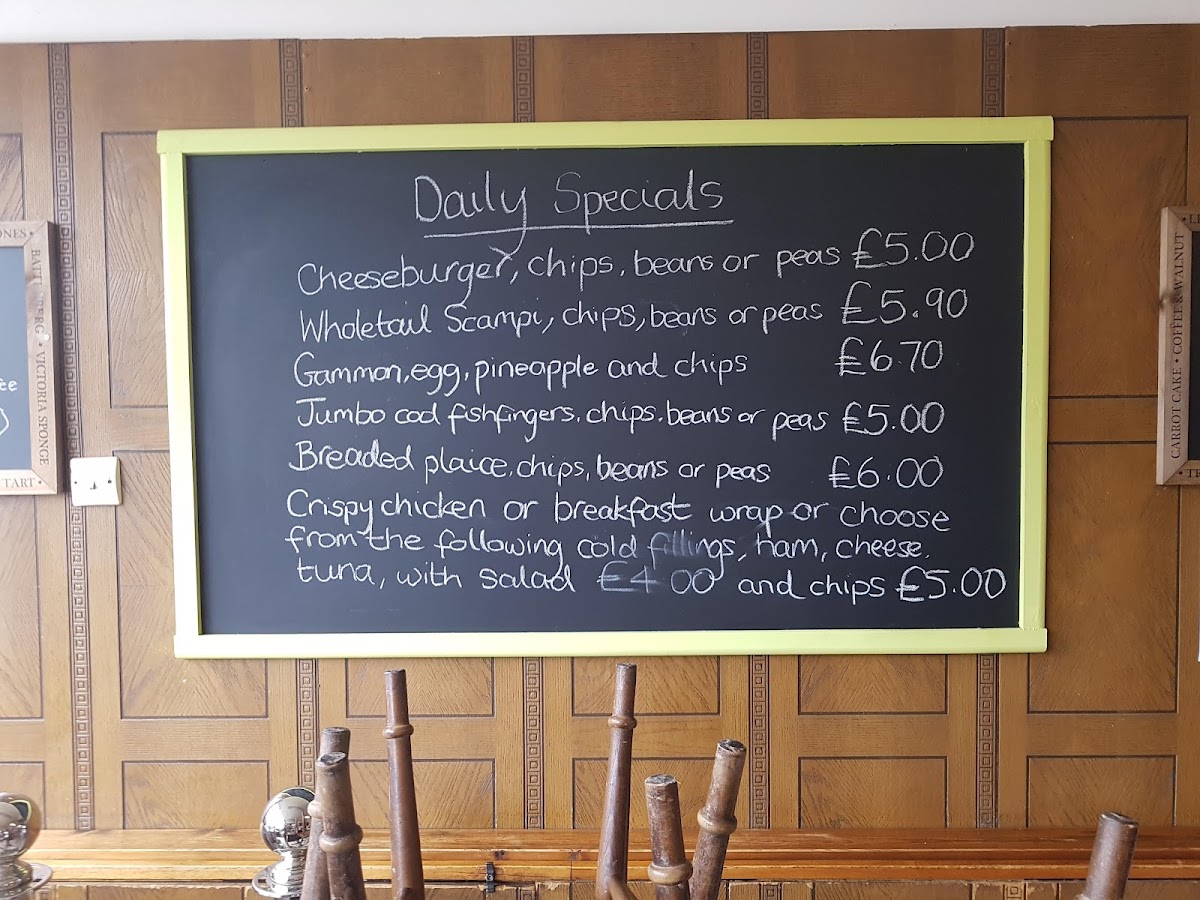 Daily Specials
Cheeseburger, chips, beans or peas £5.00
Wholetail Scampi, chips, beans or peas £5.90
Gammon, egg, pineapple and chips £6.70
Jumbo cod fishfingers, chips, beans or peas £5.00
Breaded plaice, chips, beans or peas £6.00
Crispy chicken or breakfast wrap or choose
from the following cold fillings, ham, cheese,
tuna, with salad £4.00 and chips £5.00
VICTORIA SPONGE
TART •
CARROT CAKE • COFFEE & WALNUT